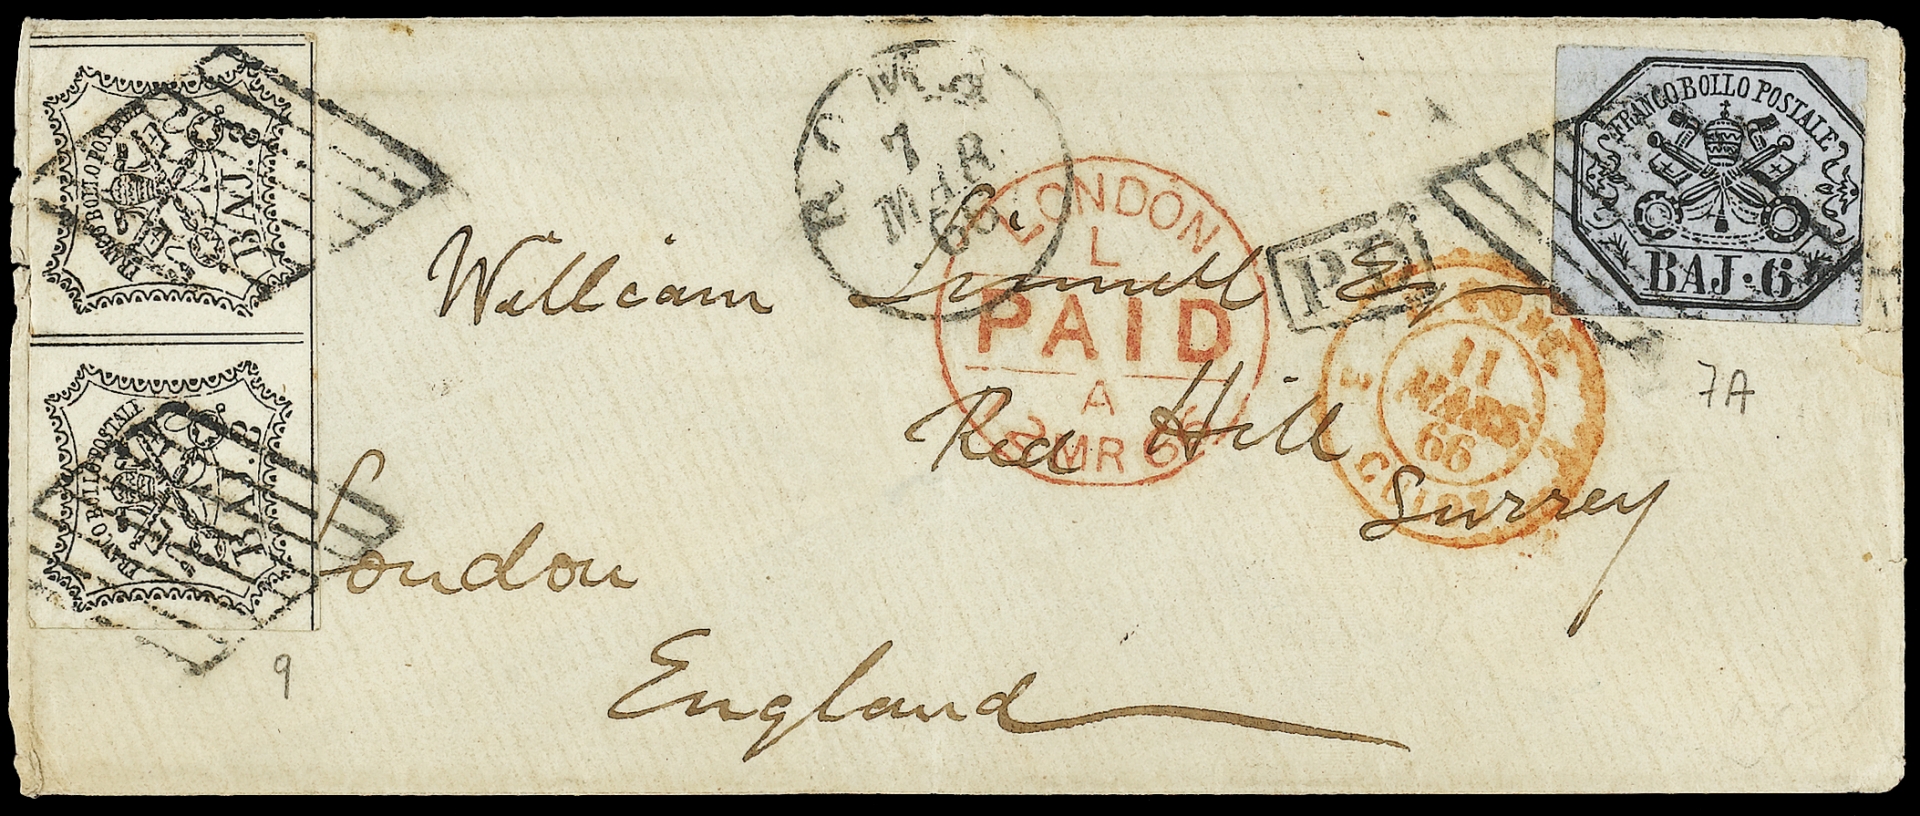 FRANCO BOLLO POSTALE
BAJ. 8
FRANCO BOLLO POSTALE
BAJ. 8
ROMA
7
MAR
66
LONDON
L
PAID
A
MR 66
P.D
11
MARS
66
FRANCO BOLLO POSTALE
BAJ. 6
William Esq
Red Hill
Surrey
London
England
9
7A